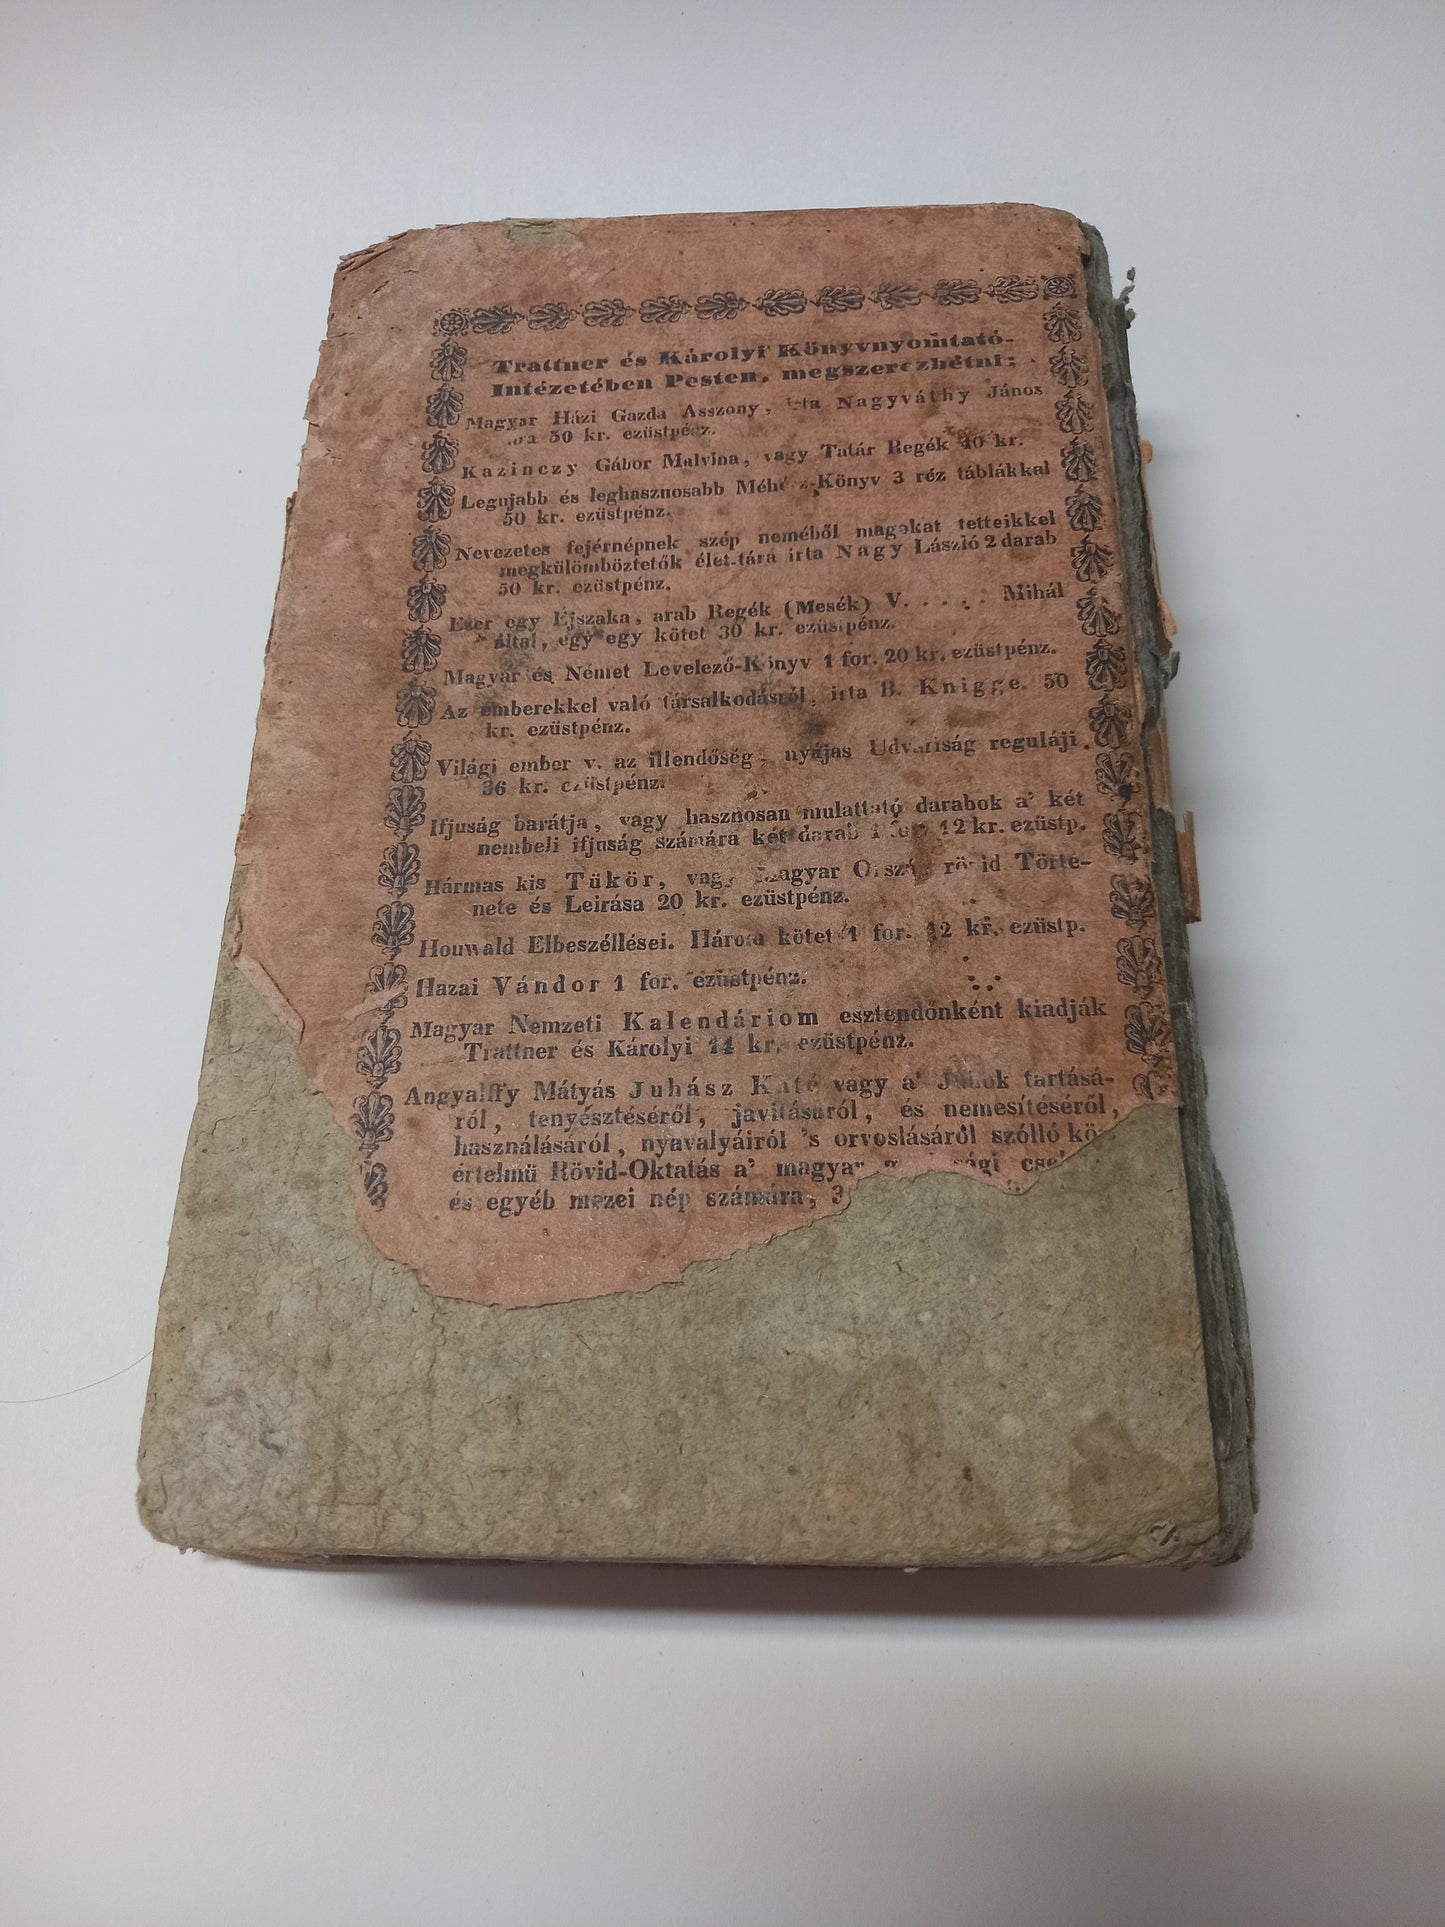 Trattner és Károlyi Könyvnyomtató-
Intézetében Pesten, megszerezhetni:
Magyar Házi Gazda Asszony, írta Nagyváthy János
50 kr. ezüstpénz.
Kazinczy Gábor Malvina, vagy Tatár Regék 40 kr.
Legujabb és leghasznosabb Méhész-Könyv 3 réz táblákkal
50 kr. ezüstpénz.
Nevezetes fejérnépnek szép neméből magokat tetteikkel
megkülömböztetők élet-tára írta Nagy László 2 darab
50 kr. ezüstpénz.
Ezer egy Éjszaka, arab Regék (Mesék) V. . . . . . Mihál
által, egy egy kötet 30 kr. ezüstpénz.
Magyar és Német Levelező-Könyv 1 for. 20 kr. ezüstpénz.
Az emberekkel való társalkodásról, írta B. Knigge. 50
kr. ezüstpénz.
Világi ember v. az illendőség, nyájas Udvariság reguláji.
36 kr. ezüstpénz.
Ifjuság barátja, vagy hasznosan mulattató darabok a' két
nembeli ifjuság számára két darab 1 for. 12 kr. ezüstp.
Hármas kis Tükör, vagy Magyar Ország rövid Törte-
nete és Leirása 20 kr. ezüstpénz.
Houwald Elbeszéllései. Három kötet 1 for. 12 kr. ezüstp.
Hazai Vándor 1 for. ezüstpénz.
Magyar Nemzeti Kalendáriom esztendőnként kiadják
Trattner és Károlyi 14 kr. ezüstpénz.
Angyalffy Mátyás Juhász Káté vagy a' Juhok tartásá-
ról, tenyésztéséről, javításáról, és nemesítéséről,
használásáról, nyavalyáiról 's orvoslásáról szólló
értelmü Rövid-Oktatás a' magyar
és egyéb mezei nép számára, 3